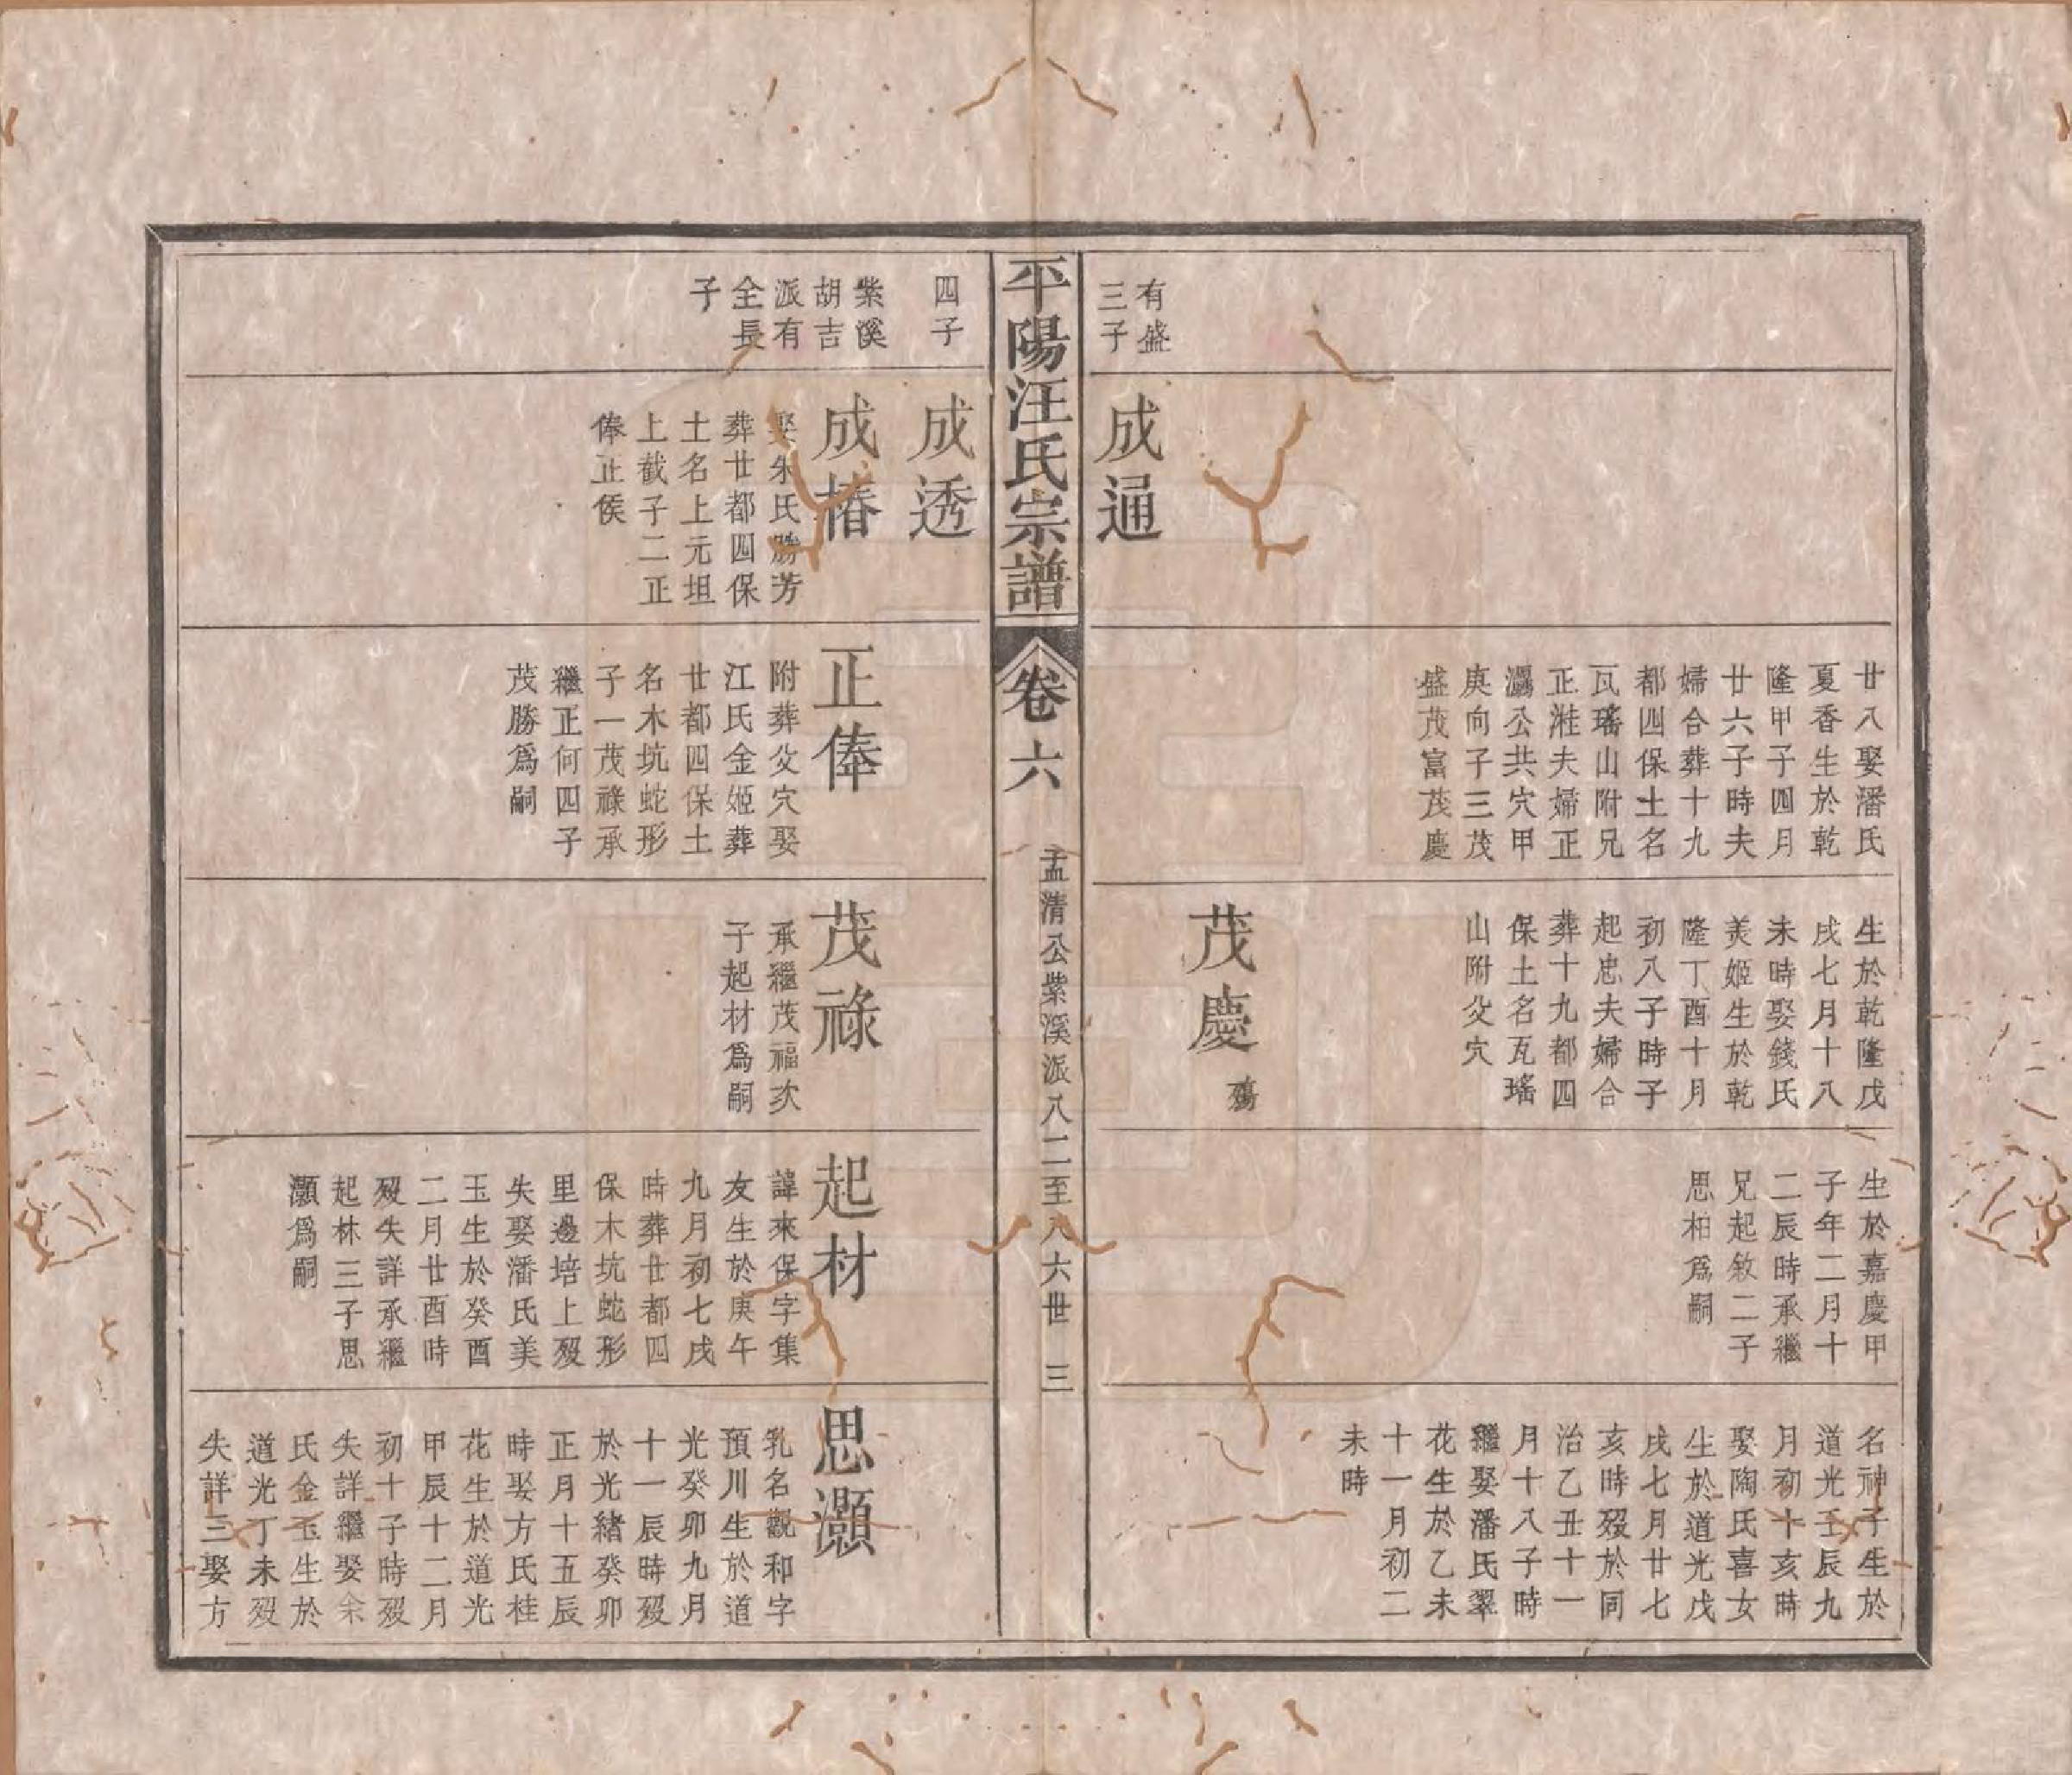 有盛
三子
成通
廿八娶潘氏
夏香生於乾
隆甲子四月
廿六子時夫
婦合葬十九
都四保土名
瓦瑤山附兄
正溎夫婦正
灟公共穴甲
庚向子三茂
盛茂富茂慶
生於乾隆戊
戌七月十八
未時娶錢氏
美姬生於乾
隆丁酉十月
初八子時子
起忠夫婦合
葬十九都四
保土名瓦瑤
山附父穴
茂慶
殤
生於嘉慶甲
子年二月十
二辰時承繼
兄起敘二子
思柏爲嗣
名神子生於
道光壬辰九
月初十亥時
娶陶氏喜女
生於道光戊
戌七月廿七
亥時歿於同
治乙丑十一
月十八子時
繼娶潘氏翠
花生於乙未
十一月初二
未時
平陽汪氏宗譜
卷六
孟清公紫溪派八二至八六世 三
四子
成透
紫溪
胡吉
派有
全長
子
成椿
娶朱氏勝芳
葬廿都四保
土名上元坦
上截子二正
俸正俟
正俸
附葬父穴娶
江氏金姬葬
廿都四保土
名木坑蛇形
子一茂祿承
繼正何四子
茂勝爲嗣
茂祿
承繼茂福次
子起材爲嗣
起材
諱來保字集
友生於庚午
九月初七戌
時葬廿都四
保木坑蛇形
里邊培上歿
失娶潘氏美
玉生於癸酉
二月廿酉時
歿失詳承繼
起林三子思
灝爲嗣
思灝
乳名觀和字
預川生於道
光癸卯九月
十一辰時歿
於光緒癸卯
正月十五辰
時娶方氏桂
花生於道光
甲辰十二月
初十子時歿
失詳繼娶余
氏金玉生於
道光丁未歿
失詳三娶方